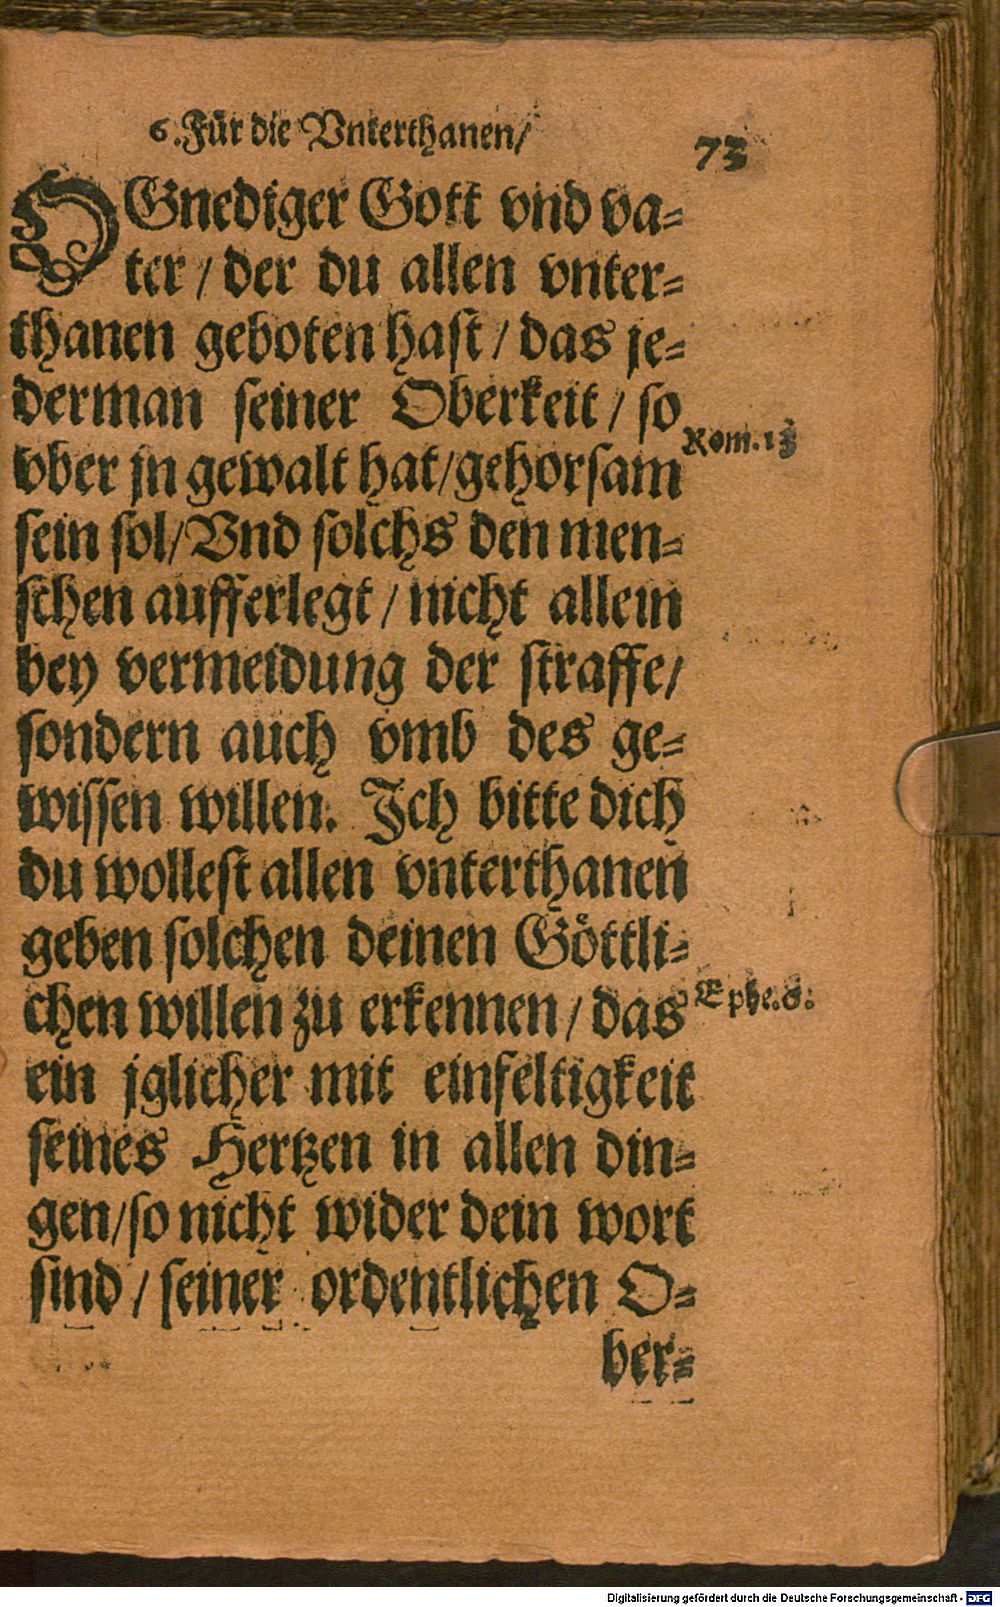 6. Für die Vnterthanen/
73
O Gnediger Gott vnd va=
ter / der du allen vnter=
thanen geboten hast / das je=
derman seiner Oberkeit / so
vber jn gewalt hat/gehorsam
Rom. 13
sein sol/Vnd solchs den men=
schen aufferlegt / nicht allein
bey vermeidung der straffe/
sondern auch vmb des ge=
wissen willen. Ich bitte dich
du wollest allen vnterthanen
geben solchen deinen Göttli=
chen willen zu erkennen / das
Ephe. 6.
ein jglicher mit einfeltigkeit
seines Hertzen in allen din=
gen/so nicht wider dein wort
sind / seiner ordentlichen O=
ber=
Digitalisierung gefördert durch die Deutsche Forschungsgemeinschaft - DFG